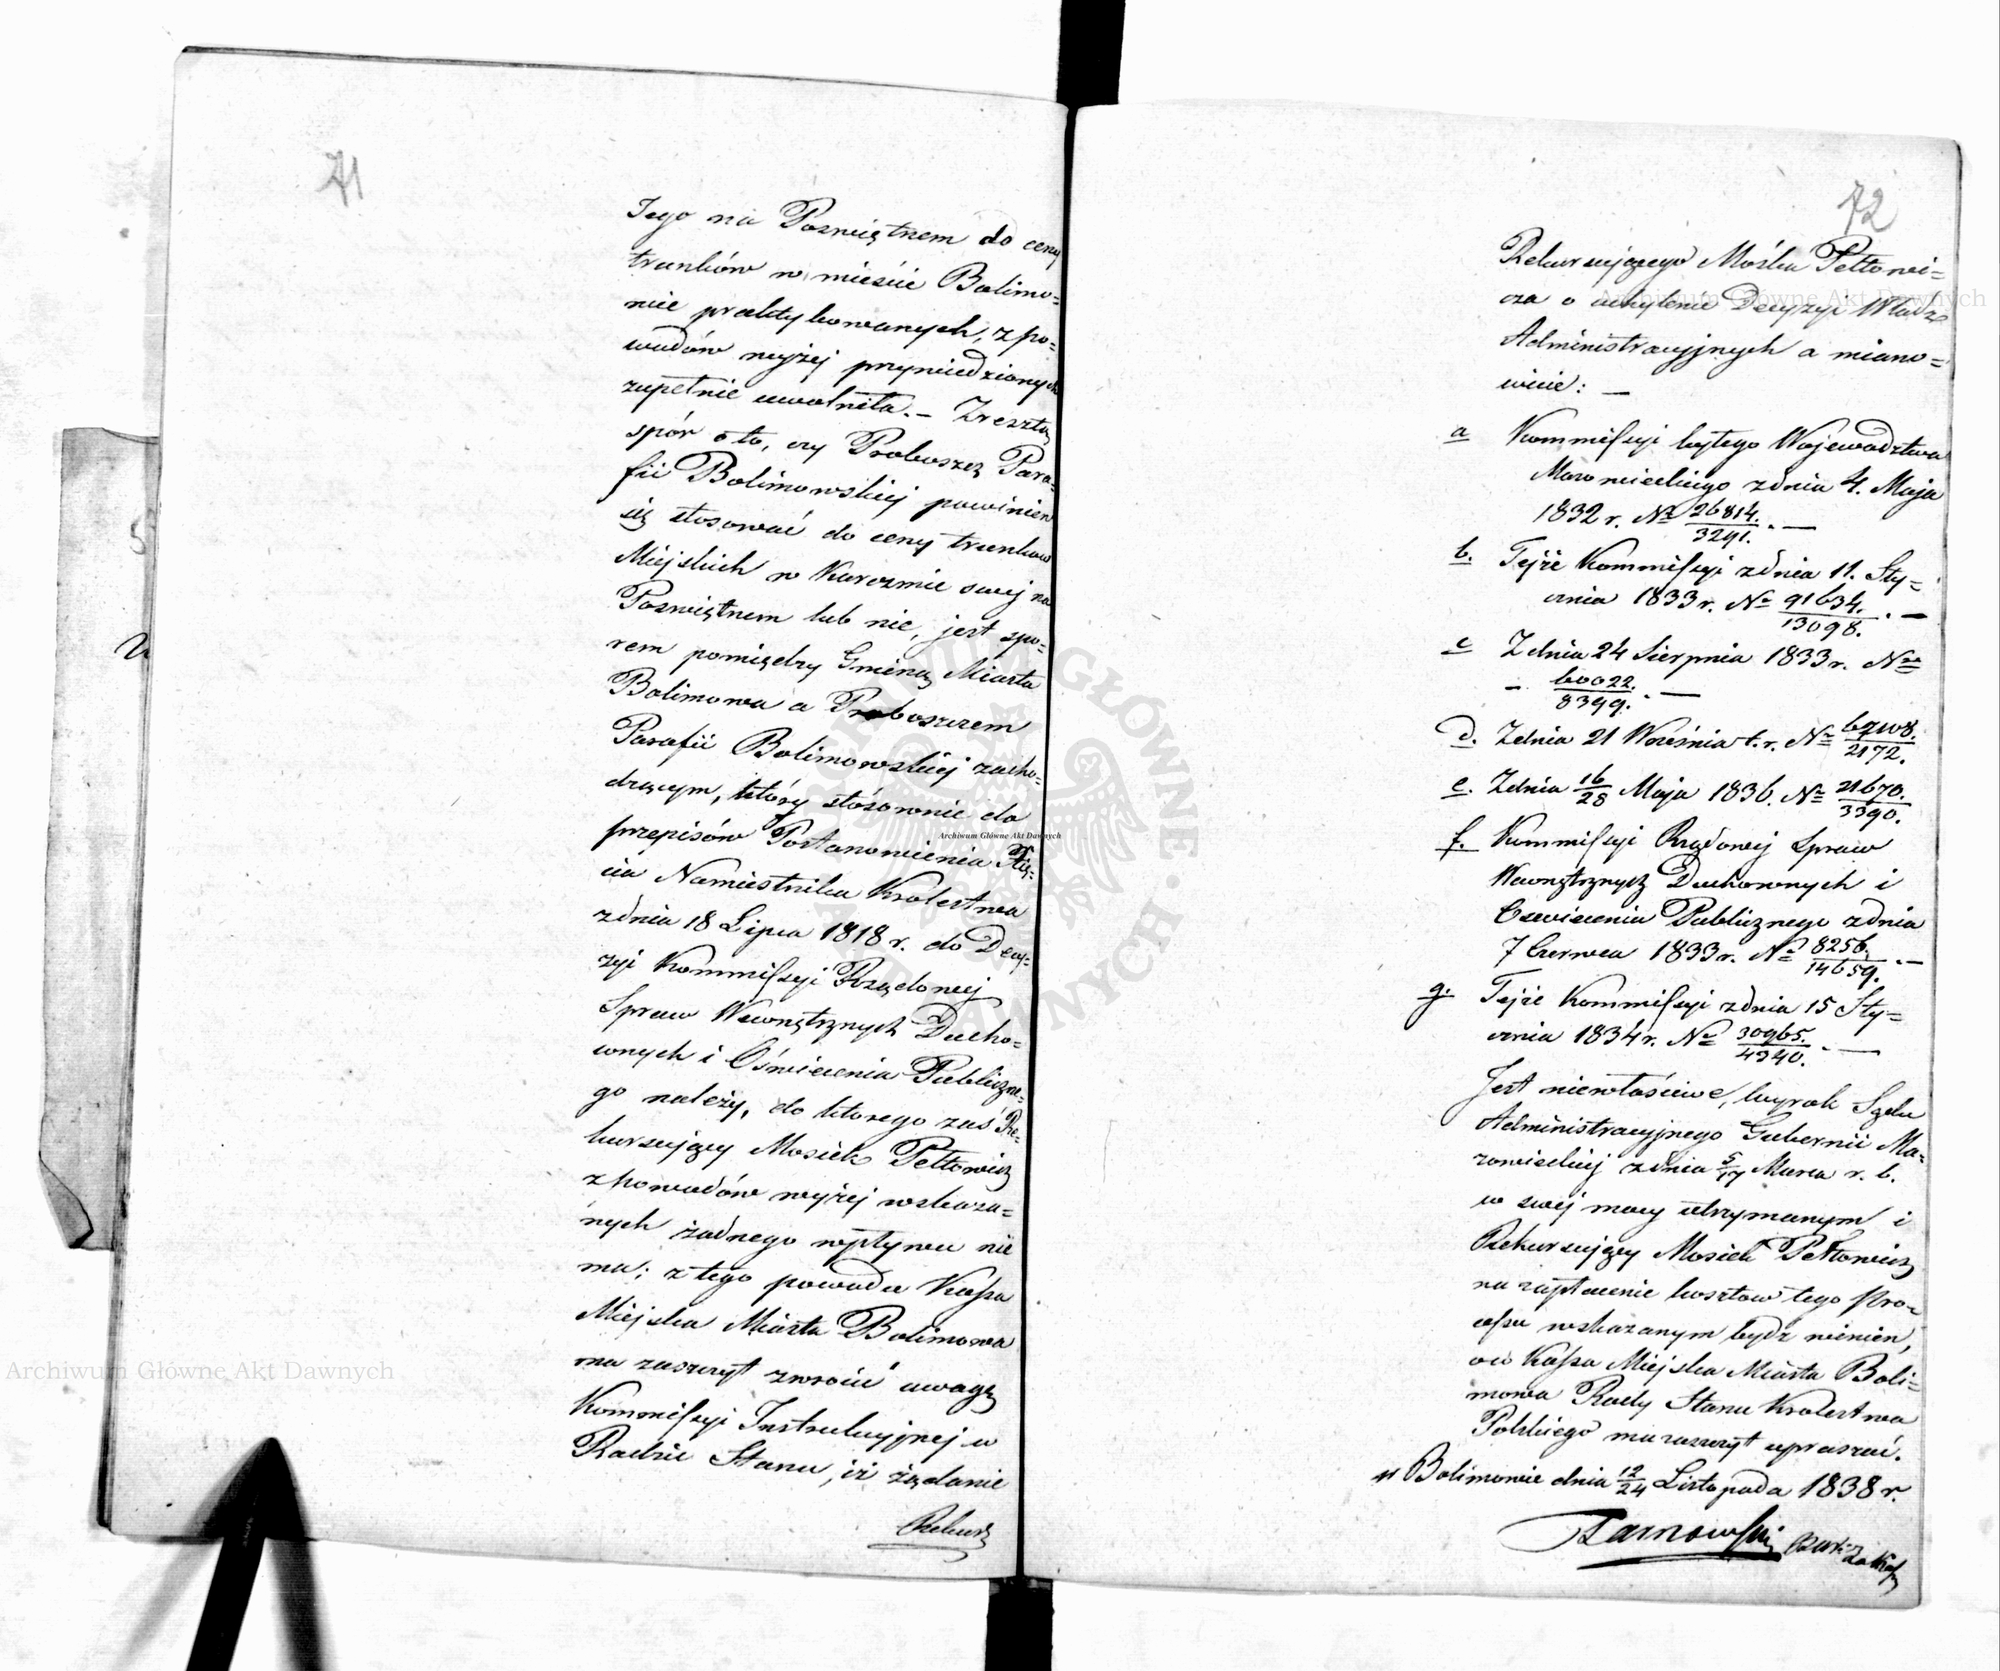 71
Jego na Poswiętnem do ceny
trunków w mieście Bolimo=
wie praktykowanych, z po=
wodów wyżej przywiedzionych
zupełnie uwolniła. – Zresztą
spór o to, czy Proboszcz Para=
fii Bolimowskiej powinien
się stosować do ceny trunków
Miejskich w Karczmie swej na
Poswiętnem lub nie, jest spo=
rem pomiędzy Gminą Miasta
Bolimowa a Proboszczem
Parafii Bolimowskiej zacho=
dzącym, który stósownie do
przepisów Postanowienia Xię=
cia Namiestnika Królestwa
z dnia 18 Lipca 1818 r. do Decy=
zyi Kommissyi Rządowej
Spraw Wewnętrznych Ducho=
wnych i Oświecenia Publiczne=
go należy, do którego zaś Re=
kursujący Mosiek Pełtowicz
z powodów wyżej wskaza=
nych żadnego wpływu nie
ma; z tego powodu Kassa
Miejska Miasta Bolimowa
ma zaszczyt zwrócić uwagę
Kommissyi Instrukcyjnej w
Radzie Stanu, iż żądanie
Rekurs
72
Rekursującego Mośka Pełtowi=
cza o uchylenie Decyzyi Władz
Administracyjnych a miano=
wicie: –
a Kommissyi byłego Województwa
Mazowieckiego z dnia 4. Maja
1832 r. No 26814./3291. –
b. Tejże Kommissyi z dnia 11. Sty=
cznia 1833 r. No 91634./13098. –
c Z dnia 24 Sierpnia 1833 r. No
– 60022./8399. –
d. Z dnia 21 Września t. r. No /2172.
e. Z dnia 16/28 Maja 1836. No 21670./3390.
f. Kommissyi Rządowej Spraw
Wewnętrznych Duchownych i
Oswiecenia Publicznego z dnia
7 Czerwca 1833 r. No 8256./14659. –
g. Tejże Kommissyi z dnia 15 Sty=
cznia 1834 r. No 30965./4340. –
Jest niewłaściwe, wyrok Sądu
Administracyjnego Gubernii Ma=
zowieckiej z dnia 5/17 Marca r. b.
w swej mocy utrzymanym i
Rekursujący Mosiek Pełtowicz
na zapłacenie kosztów tego Pro=
cessu wskazanym bydź winien,
oco Kassa Miejska Miasta Boli=
mowa Rady Stanu Królestwa
Polskiego ma zaszczyt upraszać.
w Bolimowie dnia 12/24 Listopada 1838 r.
Tarnowski
Archiwum Główne Akt Dawnych
Archiwum Główne Akt Dawnych
Archiwum Główne Akt Dawnych